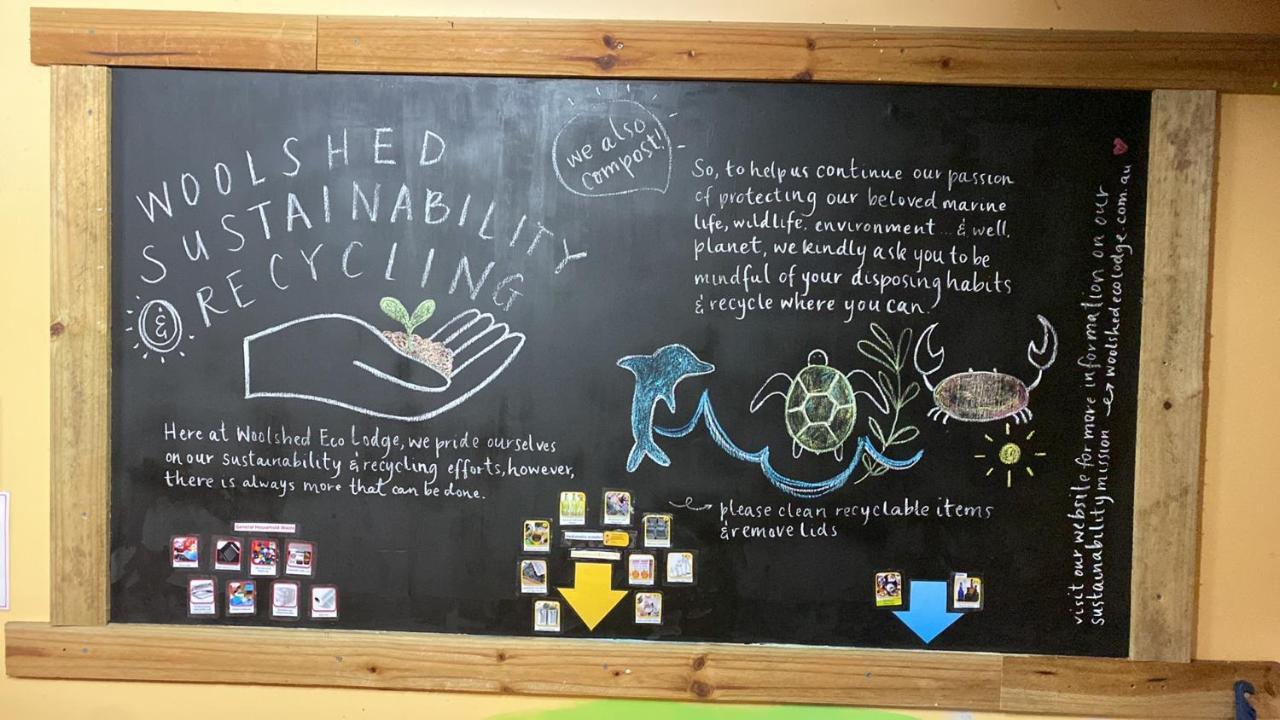 WOOLSHED
SUSTAINABILITY
& RECYCLING
we also
compost!
So, to help us continue our passion
of protecting our beloved marine
life, wildlife, environment... & well,
planet, we kindly ask you to be
mindful of your disposing habits
& recycle where you can.
Here at Woolshed Eco Lodge, we pride ourselves
on our sustainability & recycling efforts, however,
there is always more that can be done.
please clean recyclable items
& remove lids
General Household Waste
visit our website for more information on our
sustainability mission → woolshedecolodge.com.au